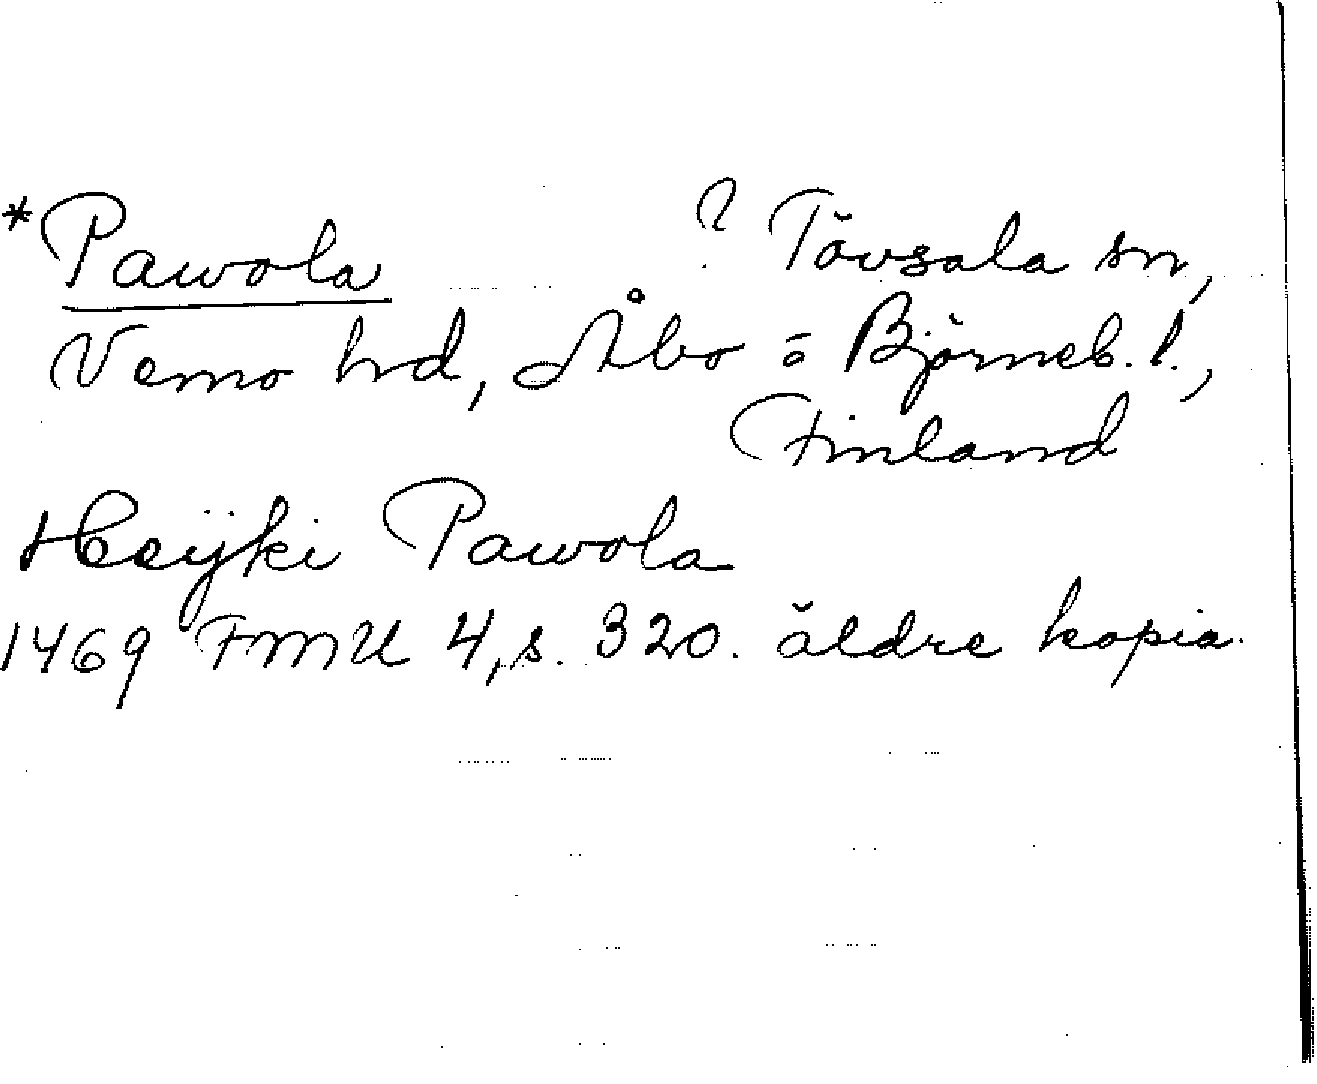 *Pawola ? Tövsala sn,
Vemo hd, Åbo o Björneb. l.,
Finland
Heÿki Pawola
1469 FMU 4, s. 320. äldre kopia.